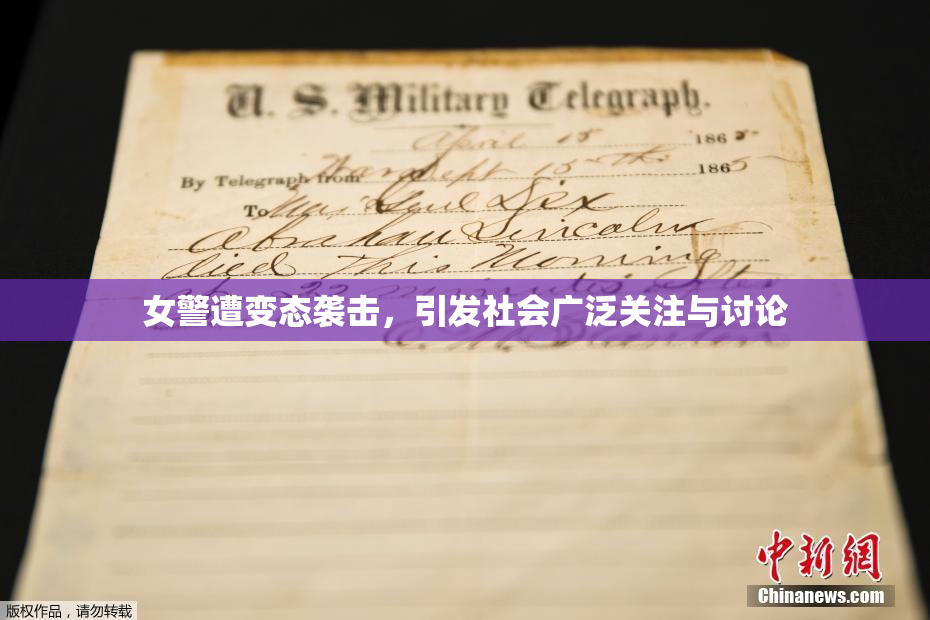 U. S. Military Telegraph.
April 15 1865
By Telegraph from War Dept 15th 1865
To Maj Genl Dix
Abraham Lincoln
died This Morning
at 22 minutes after
女警遭变态袭击，引发社会广泛关注与讨论
E. M. Stanton
中新網
Chinanews.com
版权作品，请勿转载